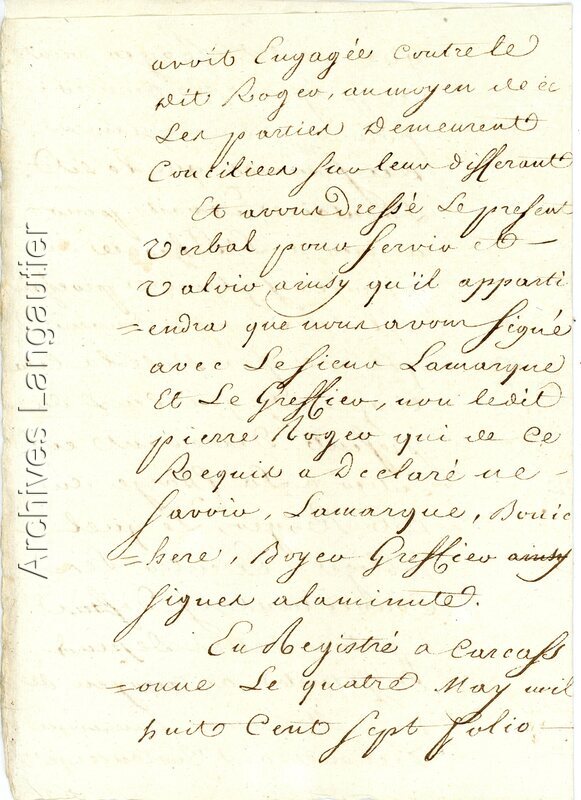 avoit Engagée contre le
dit Roger, au moyen de ce
Les parties Demeurent
Conciliées sur leur differant
Et avons dressé Le present
Verbal pour servir et
Valoir ainsy qu'il apparti
=endra que nous avons signé
avec Le sieur Lamarque
Et Le Greffier, non ledit
pierre Roger qui de ce
Requis a Declaré ne
savoir, Lamarque, Bouic
=here, Boyer Greffier ainsy
signés a la minute.
EnRegistré a Carcass
=onne Le quatre May mil
huit Cent sept folio
Archives Langautier